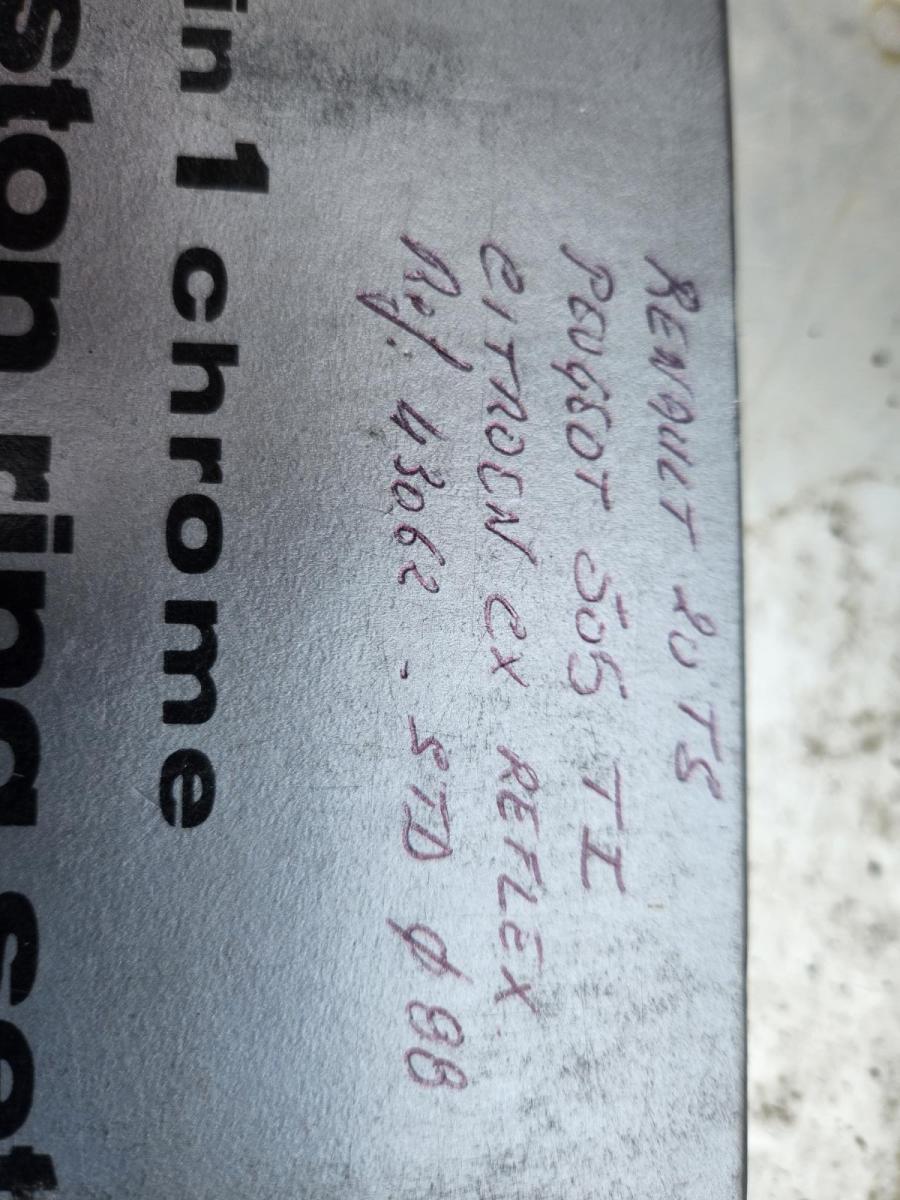 RENAULT 20 TS
PEUGEOT 505 TI
CITROEN CX REFLEX
Ref. 43062 . STD φ 88
in 1 chrome
ston ring set